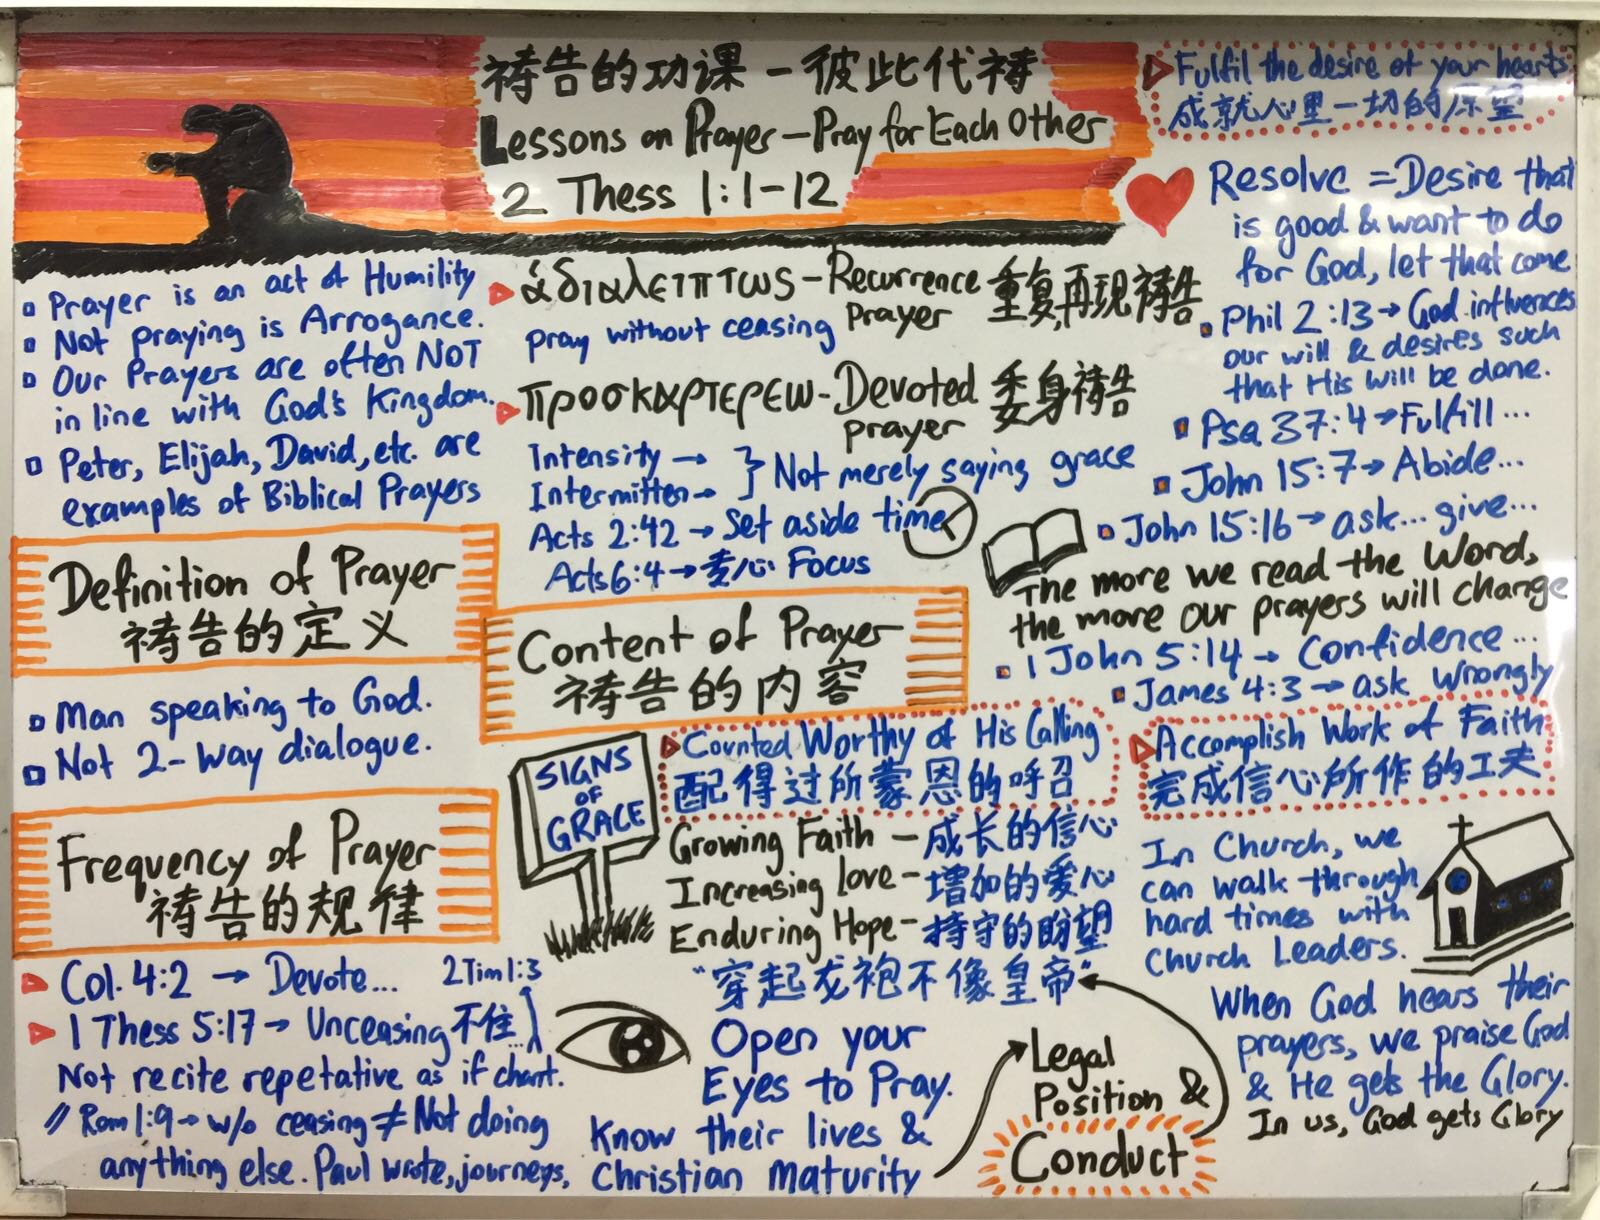 祷告的功课 - 彼此代祷
Lessons on Prayer - Pray for Each Other
2 Thess 1:1-12
Prayer is an act of Humility
Not praying is Arrogance.
Our Prayers are often NOT
in line with God's Kingdom.
Peter, Elijah, David, etc. are
examples of Biblical Prayers
Definition of Prayer
祷告的定义
Man speaking to God.
Not 2-Way dialogue.
Frequency of Prayer
祷告的规律
Col. 4:2 → Devote...
2Tim1:3
1 Thess 5:17 → Unceasing 不住...
Not recite repetative as if chant.
// Rom 1:9 → w/o ceasing ≠ Not doing
anything else. Paul wrote, journeys,
άδιαλειπτως - Recurrence 重复,再现祷告
Prayer
pray without ceasing
προσκαρτερεω - Devoted 委身祷告
prayer
Intensity →
Intermitten →
} Not merely saying grace
Acts 2:42 → Set aside time
Acts 6:4 → 专心 Focus
Content of Prayer
祷告的内容
SIGNS
OF
GRACE
Counted Worthy of His Calling
配得过所蒙恩的呼召
Growing Faith - 成长的信心
Increasing Love - 增加的爱心
Enduring Hope - 持守的盼望
"穿起龙袍不像皇帝"
Open your
Eyes to Pray.
Know their lives &
Christian maturity
Legal
Position &
Conduct
Fulfil the desire of your hearts
成就心里一切的原望
Resolve = Desire that
is good & want to do
for God, let that come
Phil 2:13 → God influences
our will & desires such
that His will be done.
Psa 37:4 → Fulfill...
John 15:7 → Abide...
John 15:16 → ask... give...
The more we read the Word,
the more our prayers will change
1 John 5:14 → Confidence...
James 4:3 → ask wrongly
Accomplish Work of Faith
完成信心所作的工夫
In Church, we
can walk through
hard times with
Church Leaders.
When God hears their
prayers, we praise God
& He gets the Glory.
In us, God gets Glory